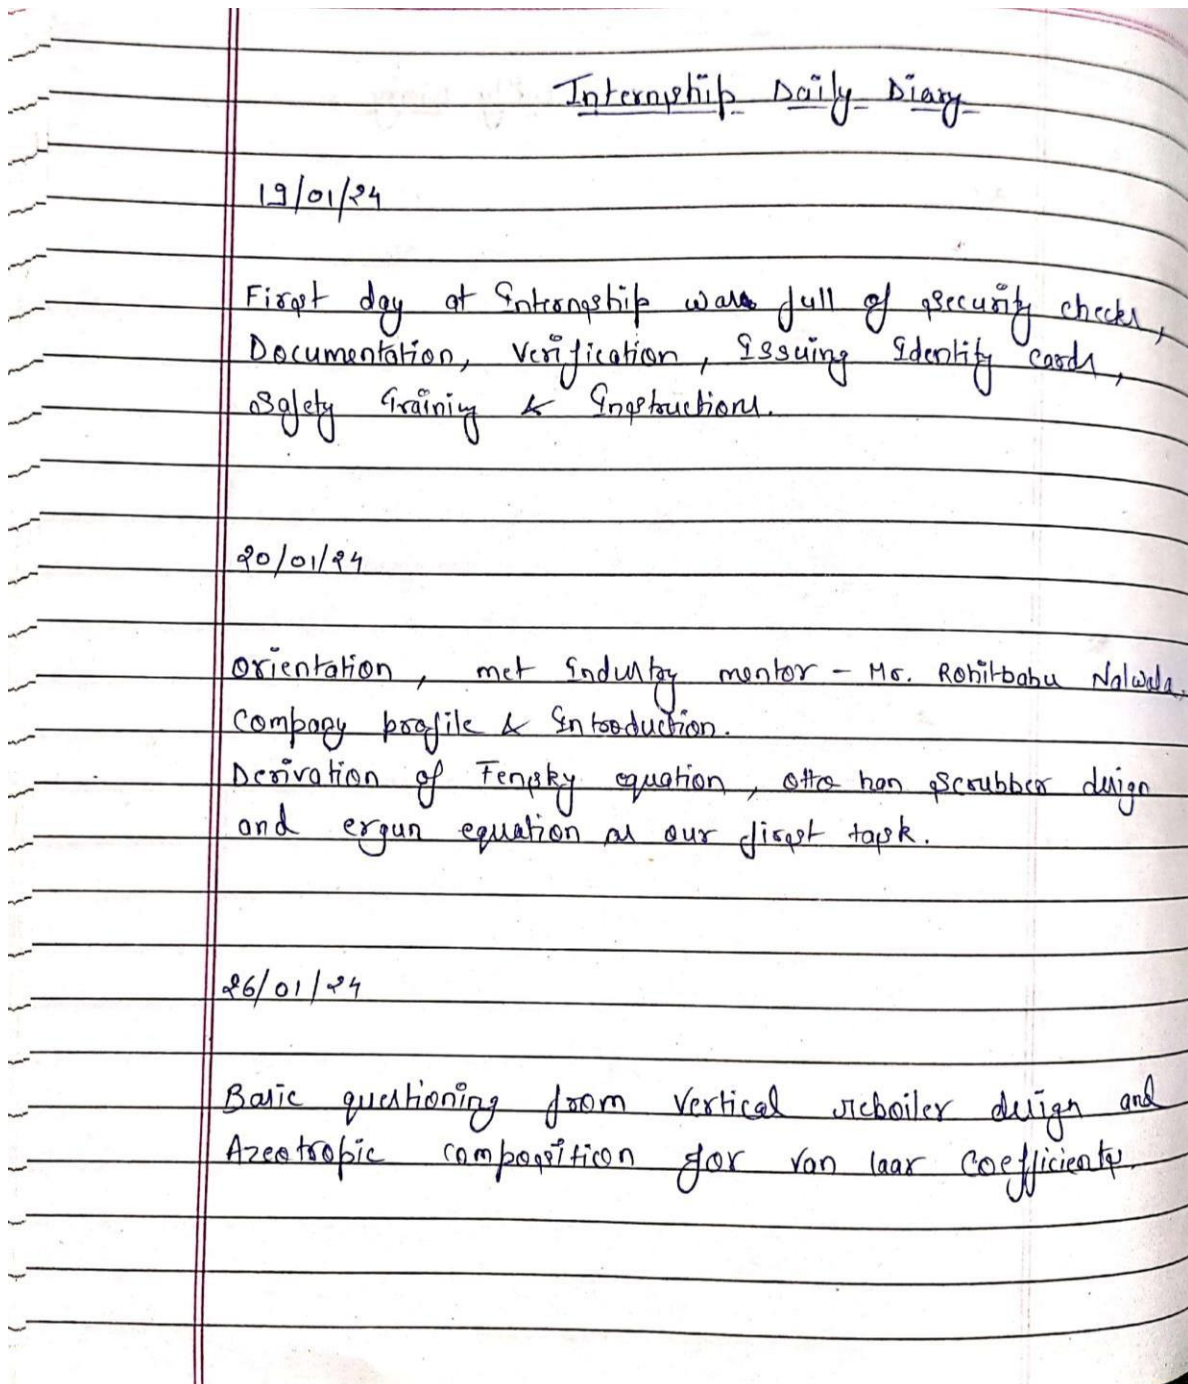 Internship Daily Diary
19/01/24
First day at Internship was full of security checks,
Documentation, Verification, Issuing Identity cards,
Safety Training & Instructions.
20/01/24
Orientation, met industry mentor - Mr. Rohitbabu Nalwala.
Company profile & Introduction.
Derivation of Fensky equation, otto han scrubber design
and ergun equation as our first task.
26/01/24
Basic questioning from vertical reboiler design and
Azeotropic composition for van laar coefficients.